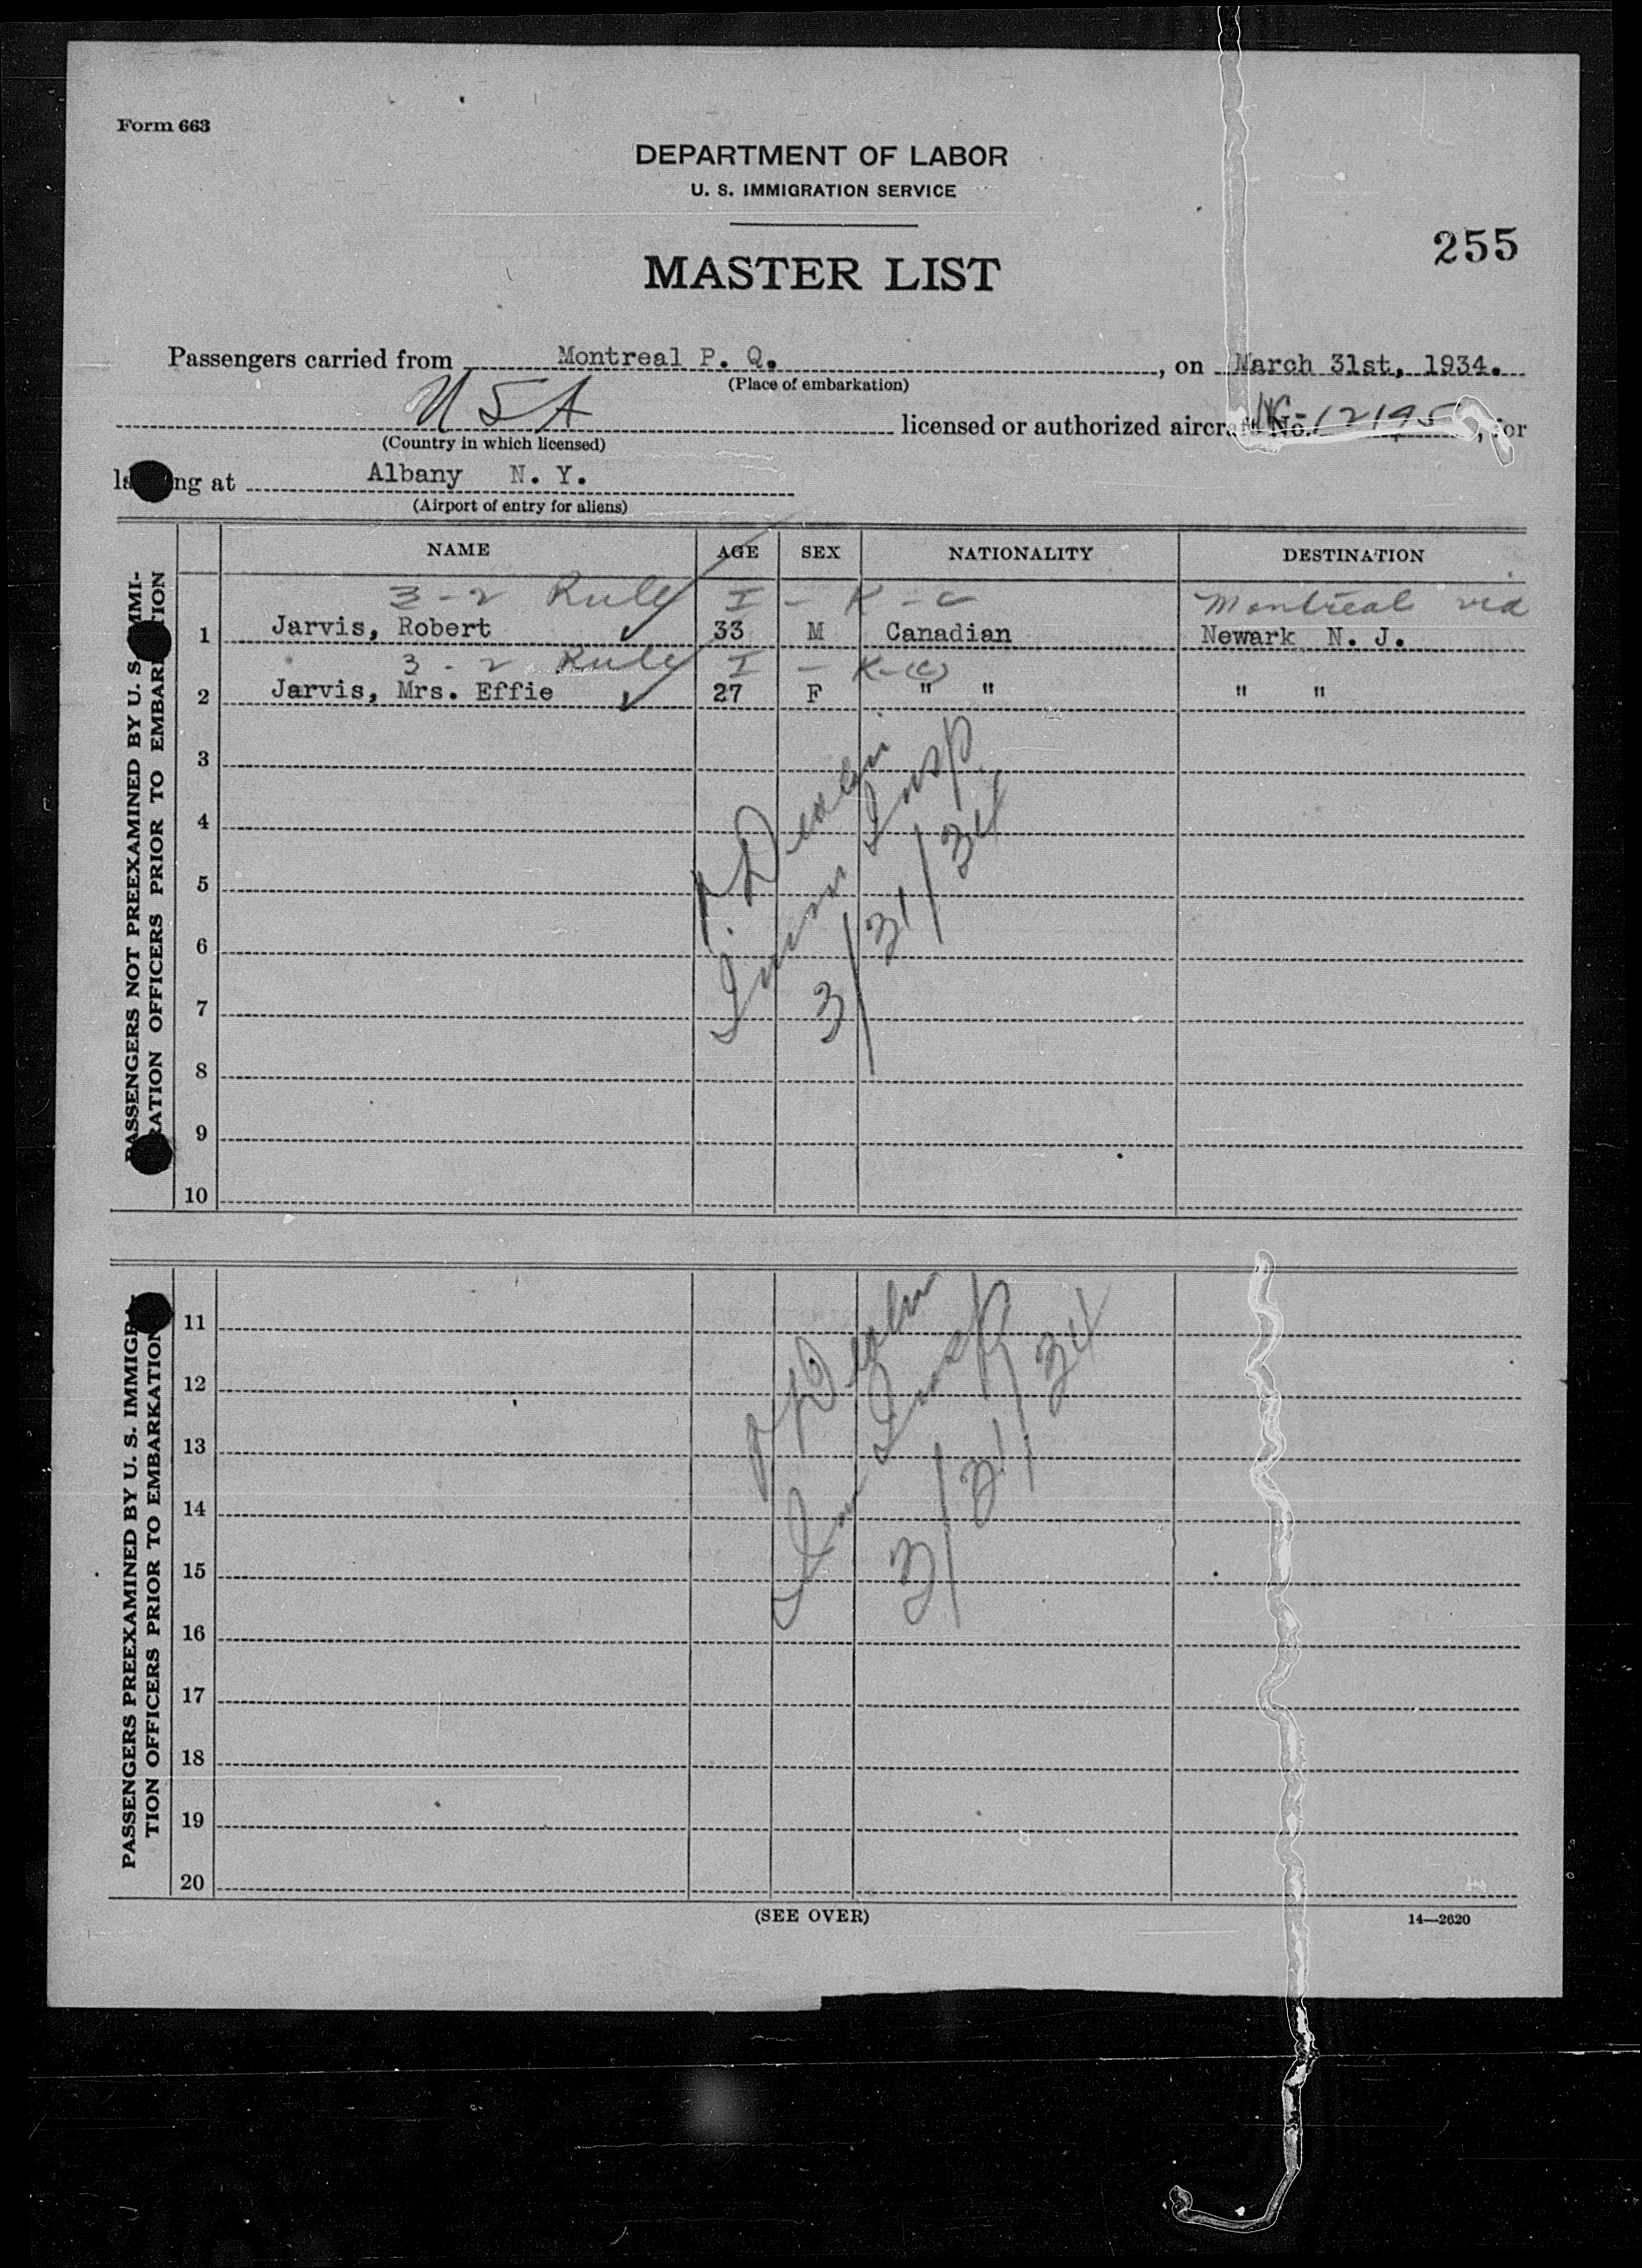 Form 663
DEPARTMENT OF LABOR
U. S. IMMIGRATION SERVICE
255
MASTER LIST
Passengers carried from Montreal P. Q. , on March 31st, 1934.
(Place of embarkation)
USA licensed or authorized aircraft No. NC-12195 , for
(Country in which licensed)
landing at Albany N. Y.
(Airport of entry for aliens)
PASSENGERS NOT PREEXAMINED BY U. S. IMMI-
GRATION OFFICERS PRIOR TO EMBARKATION
NAME AGE SEX NATIONALITY DESTINATION
3-2 Rule I - K - C Montreal via
1 Jarvis, Robert 33 M Canadian Newark N. J.
3-2 Rule I - K-(C)
2 Jarvis, Mrs. Effie 27 F " " " "
3
4
5
6
7
8
9
10
Devlin
Imm Insp
3/31/34
PASSENGERS PREEXAMINED BY U. S. IMMIGRA-
TION OFFICERS PRIOR TO EMBARKATION
11
12
13
14
15
16
17
18
19
20
Devlin
Imm Insp
3/31/34
(SEE OVER)
14—2620